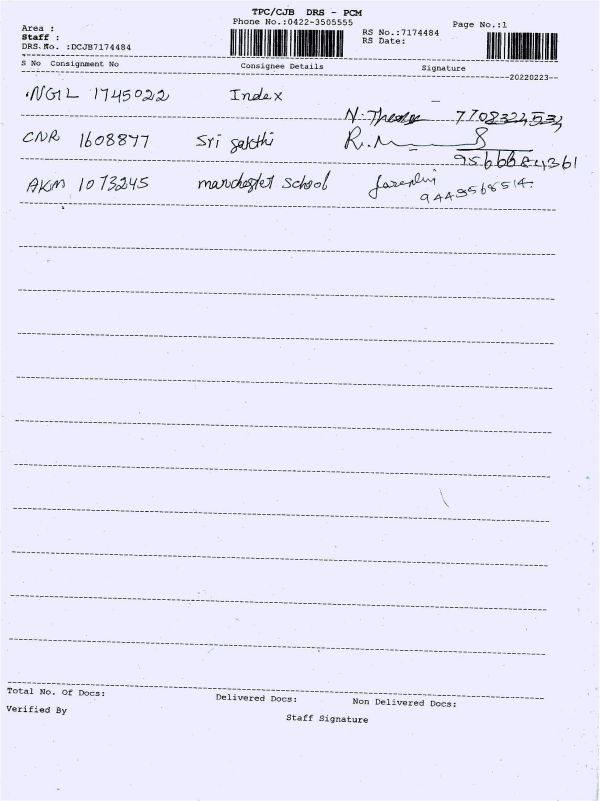 TPC/CJB DRS - PCM
Area :
Phone No.:0422-3505555
Page No.:1
Staff :
RS No.:7174484
DRS.No. :DCJB7174484
RS Date:
S No Consignment No Consignee Details Signature
20220223
NGL 1745022 Index
7708324534
CNR 1608877 Sri Sakthi R.M
9566684361
AKM 1073245 manchester School
9443568514
Total No. Of Docs: Delivered Docs: Non Delivered Docs:
Verified By
Staff Signature